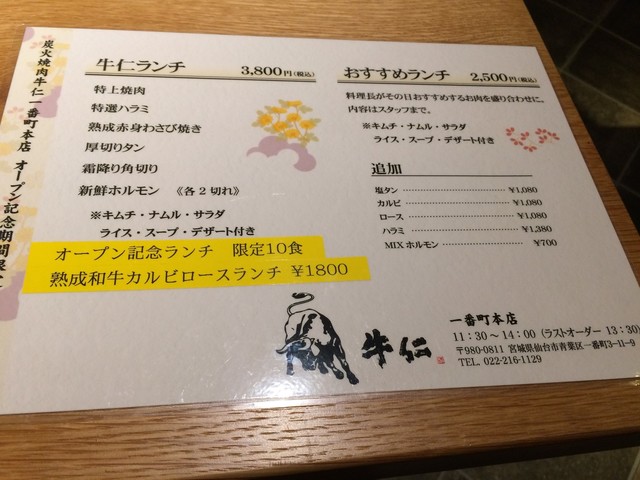 炭火焼肉牛仁一番町本店 オープン記念期間限定
牛仁ランチ 3,800円(税込)
特上焼肉
特選ハラミ
熟成赤身わさび焼き
厚切りタン
霜降り角切り
新鮮ホルモン 《各2切れ》
※キムチ・ナムル・サラダ
ライス・スープ・デザート付き
オープン記念ランチ 限定10食
熟成和牛カルビロースランチ ¥1800
おすすめランチ 2,500円(税込)
料理長がその日おすすめするお肉を盛り合わせに。
内容はスタッフまで。
※キムチ・ナムル・サラダ
ライス・スープ・デザート付き
追加
塩タン ¥1,080
カルビ ¥1,080
ロース ¥1,080
ハラミ ¥1,380
MIXホルモン ¥700
牛仁
一番町本店
11:30～14:00 (ラストオーダー 13:30)
〒980-0811 宮城県仙台市青葉区一番町3-11-9
TEL. 022-216-1129